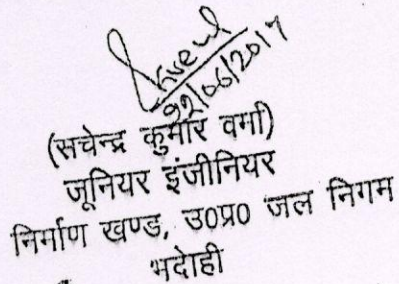 22/06/2017
(सचेन्द्र कुमार वर्मा)
जूनियर इंजीनियर
निर्माण खण्ड, उ0प्र0 जल निगम
भदोही